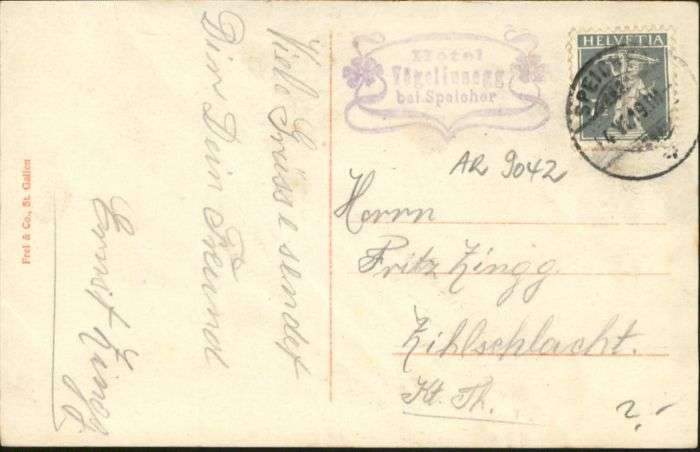 Viele Grüsse sendet
Dir Dein Freund
Ernst Zingg
Frei & Co., St. Gallen
Hotel
Vögelinsegg
bei Speicher
HELVETIA
AR 9042
Herrn
Fritz Zingg
Zihlschlacht.
Kt. Th.
2.-